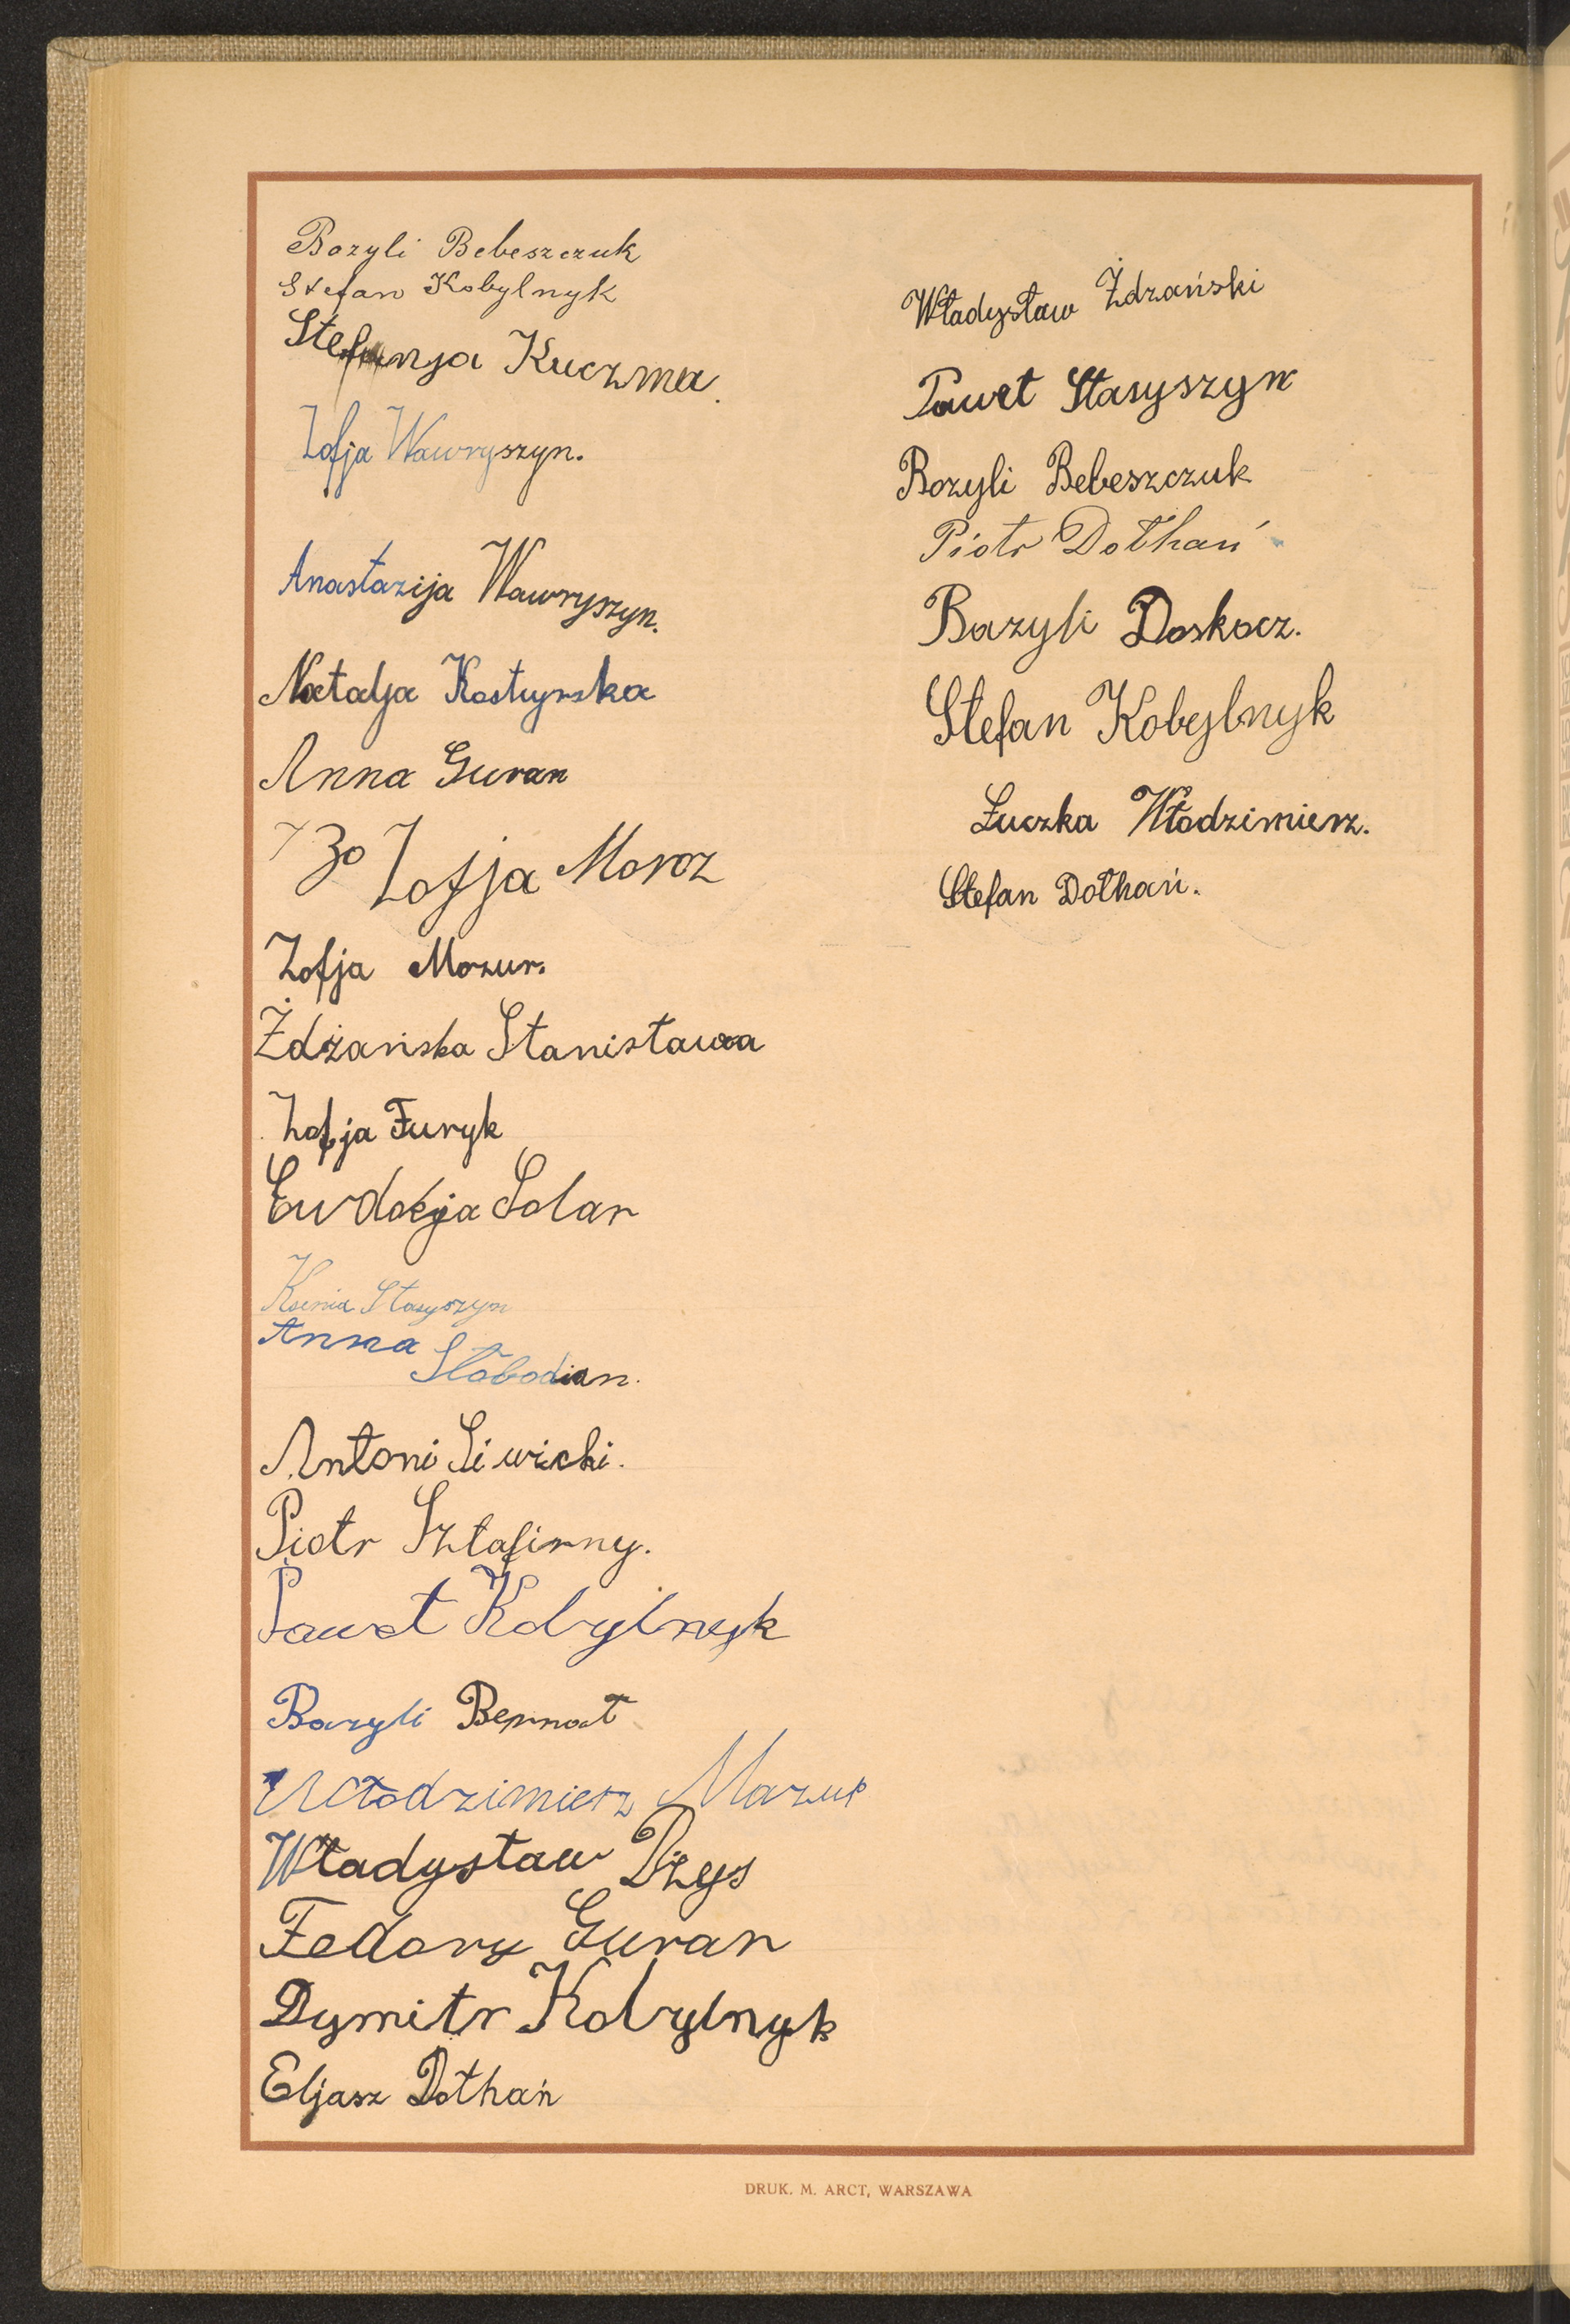 Bazyli Bebeszczuk
Stefan Kobylnyk
Stefanja Kuczma.
Zofja Wawryszyn.
Anastazija Wawryszyn.
Natalja Kostyrska
Anna Guran
Zo Zofja Moroz
Zofja Mazur.
Żdżańska Stanisława
Zofja Furyk
Ewdokja Solar
Ksenia Stasyszyn
Anna
Słobodian.
Antoni Siwicki.
Piotr Sztafirny.
Paweł Kobylnyk
Bazyli Bernat
Włodzimierz Mazur
Władysław Dżys
Fedory Guran
Dymitr Kobylnyk
Eljasz Dołhań
Władysław Żdzański
Paweł Stasyszyn
Bazyli Bebeszczuk
Piotr Dołhań
Bazyli Doskocz.
Stefan Kobylnyk
Łuczka Włodzimierz.
Stefan Dołhań.
DRUK. M. ARCT, WARSZAWA